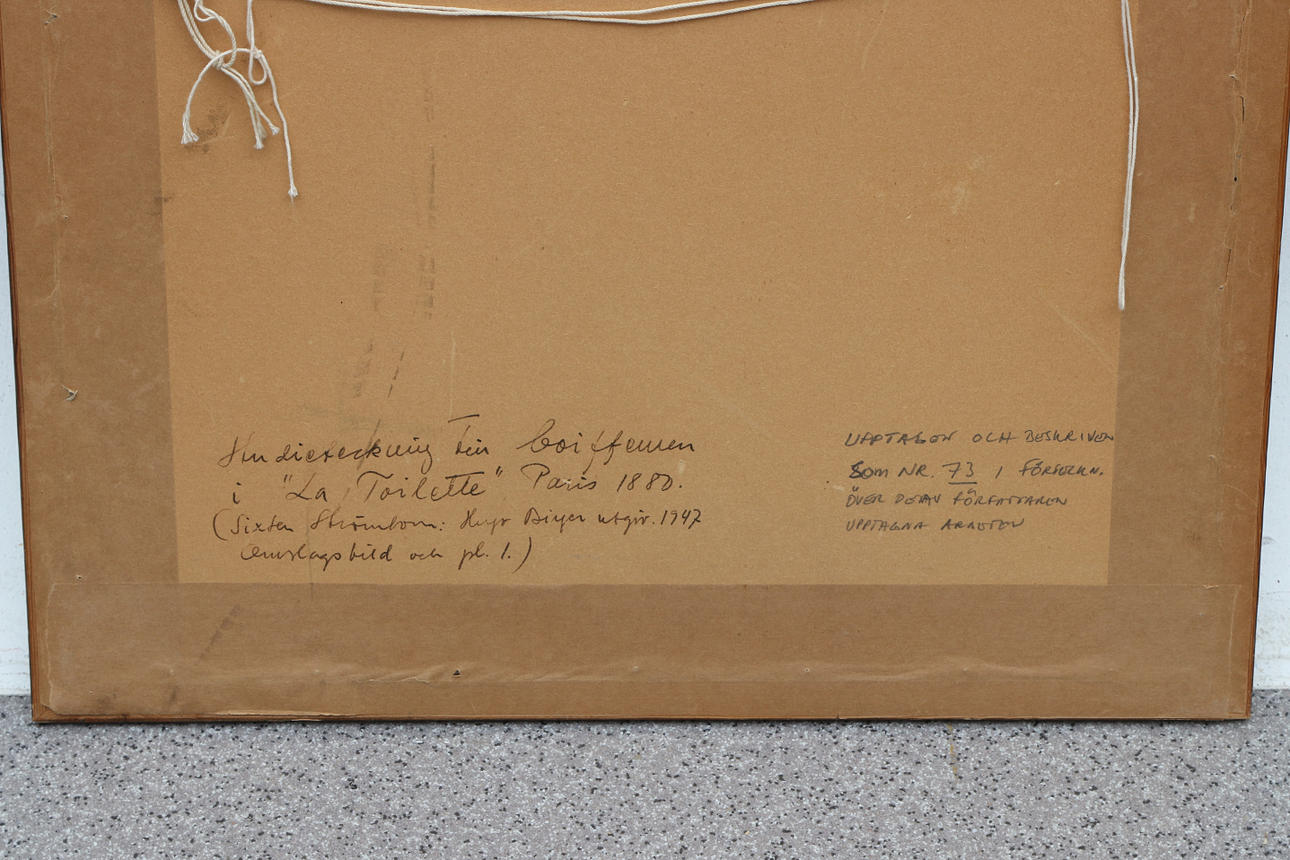 Studieteckning till Coiffeusen
i "La Toilette" Paris 1880.
(Sixten Strömbom: Hugo Birger utgiv. 1947
Omslagsbild och pl. 1.)
UPPTAGEN OCH BESKRIVEN
SOM NR. 73 I FÖRTECKN.
ÖVER DE AV FÖRFATTAREN
UPPTAGNA ARBETEN